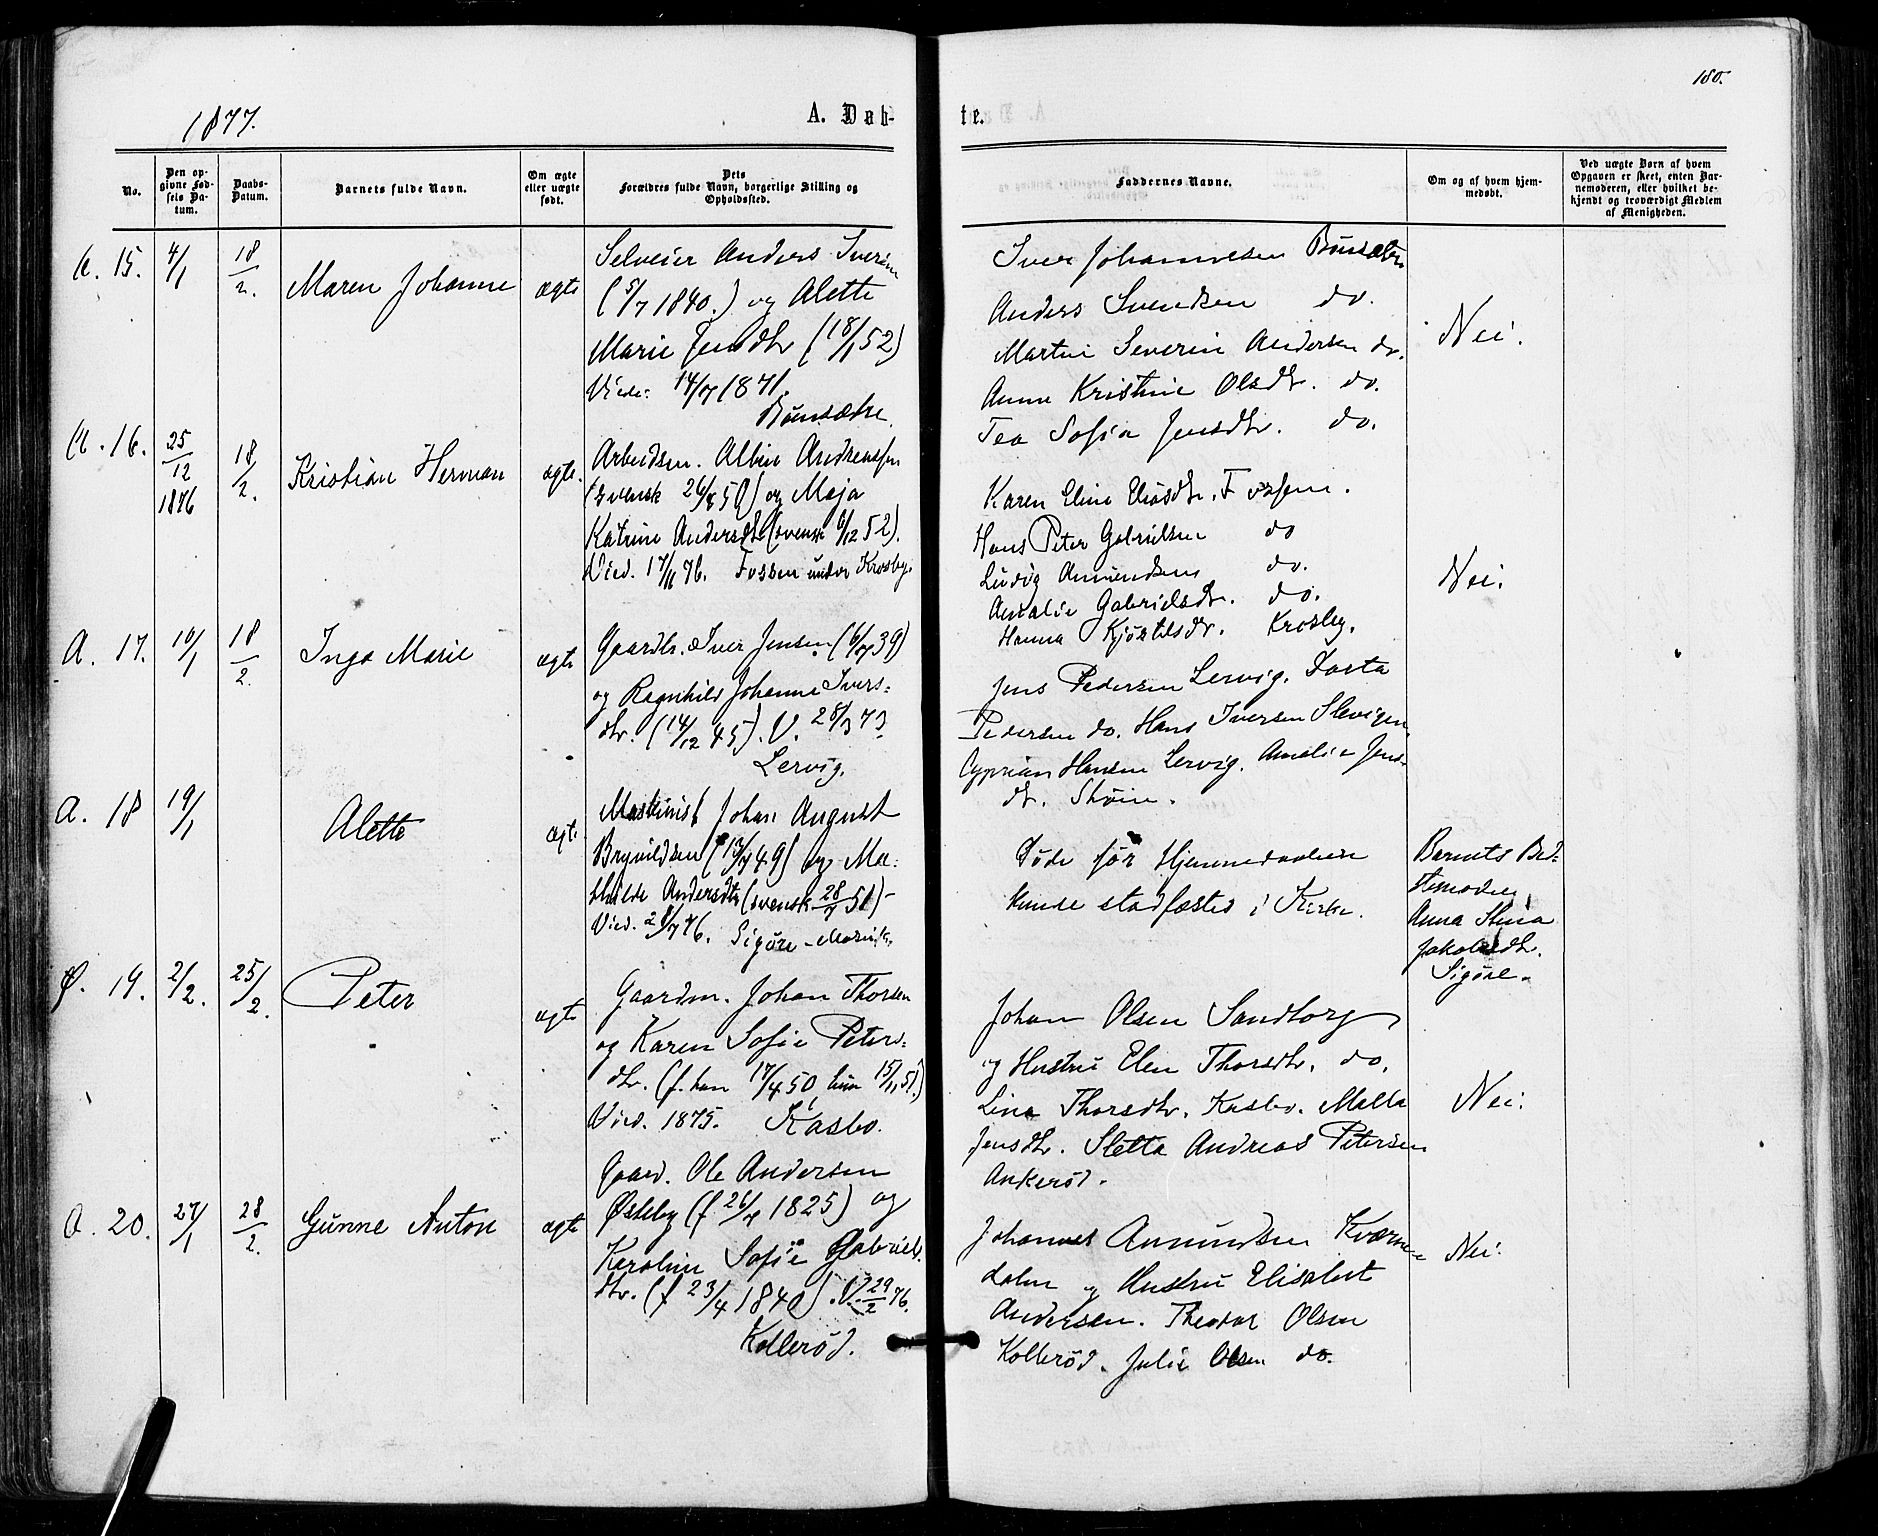 180.
1877.
A. Døb-
te.
No.
Den op-
givne Fød-
sels Da-
tum.
Daabs-
Datum.
Barnets fulde Navn.
Om ægte
eller uægte
født.
Dets
Forældres fulde Navn, borgerlige Stilling og
Opholdssted.
Faddernes Navne.
Om og af hvem hjem-
medøbt.
Ved uægte Børn af hvem
Opgaven er skeet, enten Bar-
nemoderen, eller hvilket be-
kjendt og troværdigt Medlem
af Menigheden.
A. 15. 4/1 18/2. Maren Johanne ægte
Selveier Anders Iversen
(5/7 1840.) og Alette
Marie Jensdtr (18/1 52)
Viede: 14/7 1871.
Iver Johannesen
Anders Svendsen do.
Martin Severin Andersen do.
Anne Kristine Olsdtr. do.
Tea Sofia Jensdtr. do.
Nei.
A. 16. 25/12 1876 18/2. Kristian Herman ægte.
Arbeidsm. Albin Andreassen
(svensk 26/8 50) og Maja
Katrine Andersdtr (svensk 6/12 52).
Vied. 17/11 76. Fossen under Krosby.
Karen Eline Eliasdtr. Fossen.
Hans Peter Gabrielsen do
Ludvig Amundsen do.
Amalie Gabrielsdtr. do.
Hanna Kjøstelsdtr. Krosby.
Nei.
A. 17. 16/1 18/2. Inga Marie ægte
Gaardbr. Iver Jensen (6/7 39)
og Ragnhild Johanne Ivers-
dtr. (14/12 45). V. 28/3 73
Lervig.
Jens Pedersen Lervig. Dorta
Pedersen do. Hans Iversen Slevigen
Cyprian Hansen Lervig. Amalie Jens-
dtr. Støin.
A. 18 19/1 Alette ægte
Maskinist Johan August
Brynildsen (17/4 49) og Ma-
thilde Andersdtr (svensk 28/7 50) -
Sigøre -
Døde før Hjemmedaaben
kunde stadfæstes i Kirke.
Barnets Bed-
stemoder
Anna Stina
Jakobsdtr.
Sigøre.
Ø. 19. 2/2. 25/2. Peter ægte
Gaardm. Johan Thorsen
og Karen Sofie Peters-
dtr. (f. han 17/4 50, hun 15/11 51.)
Vied. 1875. Kasbo.
Johan Olsen Sandtorg
og Hustru Elen Thorsdtr. do.
Lina Thorsdtr. Kasbo. Malla
Jensdtr. Sletta Andreas Petersen
Ankerød.
Nei.
A. 20. 27/1 28/2. Gunne Anton ægte
Gaard. Ole Andersen
Østeby (f 26/7 1825) og
Karoline Sofie Gabriels-
dtr. (f 23/4 1840). V. 29/2 76.
Kollerød.
Johannes Amundsen Kværne-
dalen og Hustru Elisabet
Andersen. Theodor Olsen
Kollerød. Julie Olsen do.
Nei.